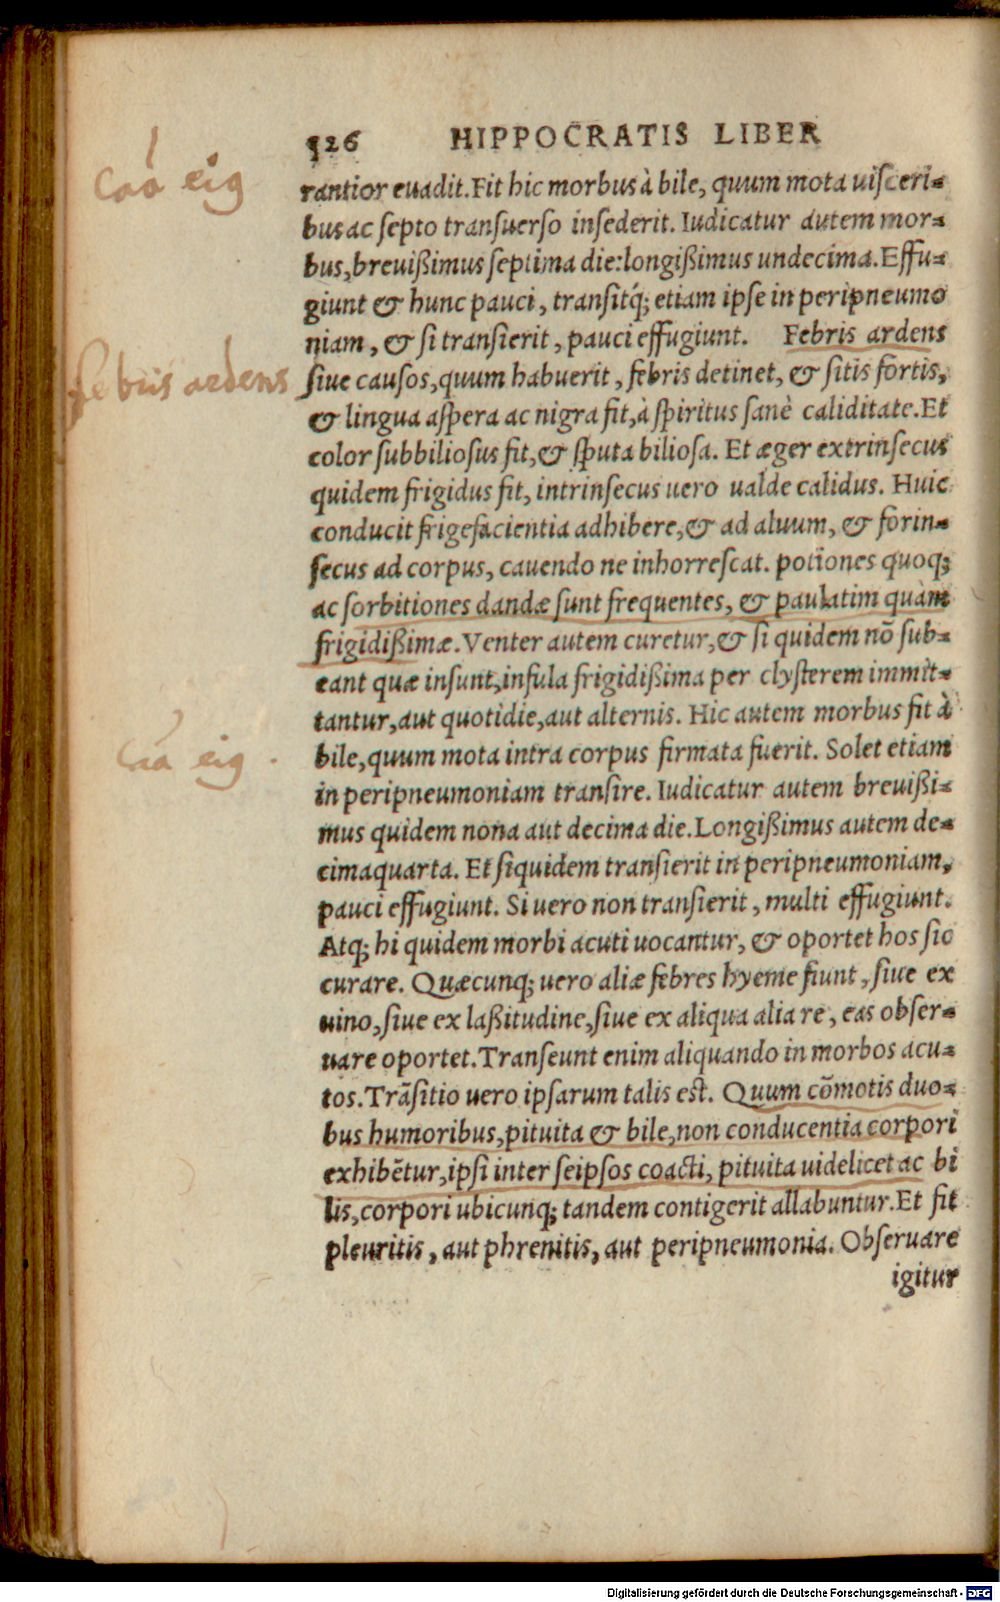 526 HIPPOCRATIS LIBER
rantior euadit. Fit hic morbus à bile, quum mota uisceri-
bus ac septo transuerso insederit. Iudicatur autem mor-
bus, breuißimus septima die: longißimus undecima. Effu-
giunt & hunc pauci, transitq́; etiam ipse in peripneumo
niam, & si transierit, pauci effugiunt. Febris ardens
siue causos, quum habuerit, febris detinet, & sitis fortis,
& lingua aspera ac nigra fit, à spiritus sanè caliditate. Et
color subbiliosus fit, & sputa biliosa. Et æger extrinsecus
quidem frigidus fit, intrinsecus uero ualde calidus. Huic
conducit frigefacientia adhibere, & ad aluum, & forin-
secus ad corpus, cauendo ne inhorrescat. potiones quoq;
ac sorbitiones dandæ sunt frequentes, & paulatim quàm
frigidißimæ. Venter autem curetur, & si quidem nō sub-
eant quæ insunt, infusa frigidißima per clysterem immit-
tantur, aut quotidie, aut alternis. Hic autem morbus fit à
bile, quum mota intra corpus firmata fuerit. Solet etiam
in peripneumoniam transire. Iudicatur autem breuißi-
mus quidem nona aut decima die. Longißimus autem de-
cimaquarta. Et siquidem transierit in peripneumoniam,
pauci effugiunt. Si uero non transierit, multi effugiunt.
Atq; hi quidem morbi acuti uocantur, & oportet hos sic
curare. Quæcunq; uero aliæ febres hyeme fiunt, siue ex
uino, siue ex laßitudine, siue ex aliqua alia re, eas obser-
uare oportet. Transeunt enim aliquando in morbos acu-
tos. Trāsitio uero ipsarum talis est. Quum cōmotis duo-
bus humoribus, pituita & bile, non conducentia corpori
exhibētur, ipsi inter seipsos coacti, pituita uidelicet ac bi
lis, corpori ubicunq; tandem contigerit allabuntur. Et fit
pleuritis, aut phrenitis, aut peripneumonia. Obseruare
igitur
febris ardens
Digitalisierung gefördert durch die Deutsche Forschungsgemeinschaft - DFG